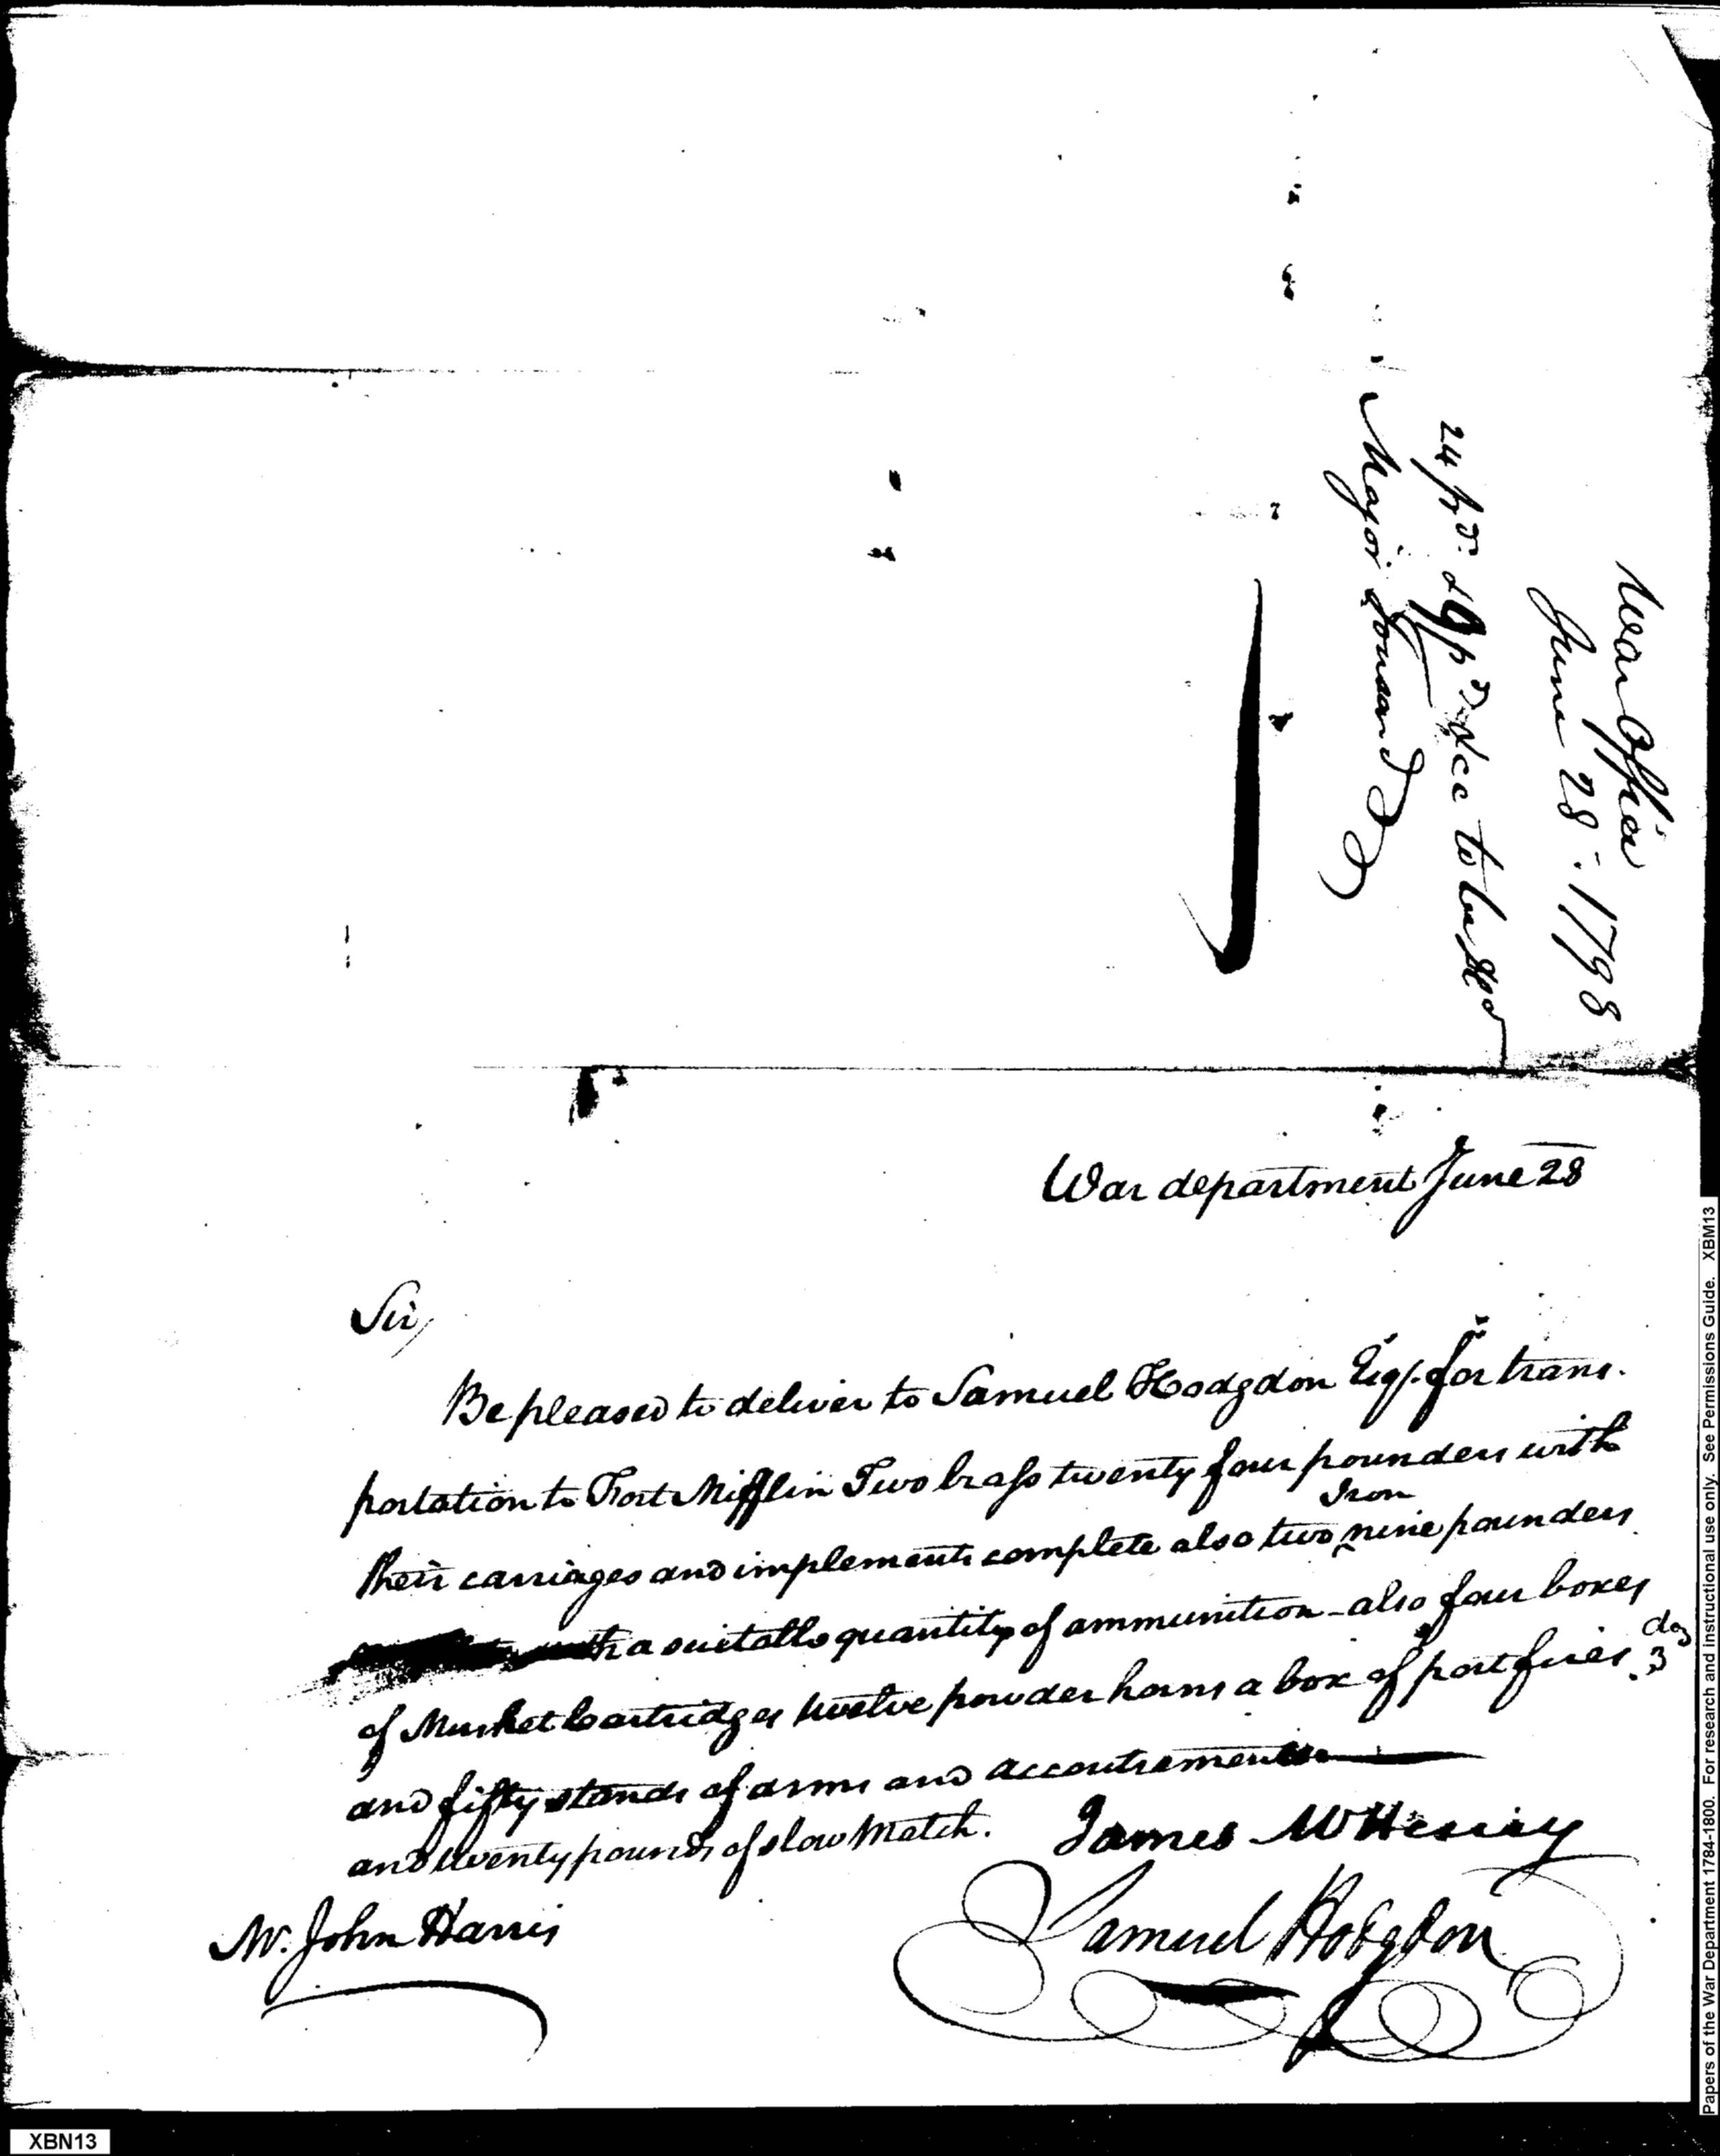 War Office
June 28 : 1798
24 pd: & 9 pd &cc to be
Major
War department June 28
Sir,
Be pleased to deliver to Samuel Hodgdon Esqr. for trans-
portation to Fort Mifflin Two brass twenty four pounders with
their carriages and implements complete also two Iron nine pounders
with a suitable quantity of ammunition - also four boxes
of Musket Cartridges twelve powder horns a box of portfires 3 doz
and fifty stands of arms and accoutrements
and twenty pounds of slow match.
James McHenry
Samuel Hodgdon
Mr. John Harris
Papers of the War Department 1784-1800. For research and instructional use only. See Permissions Guide. XBM13
XBN13